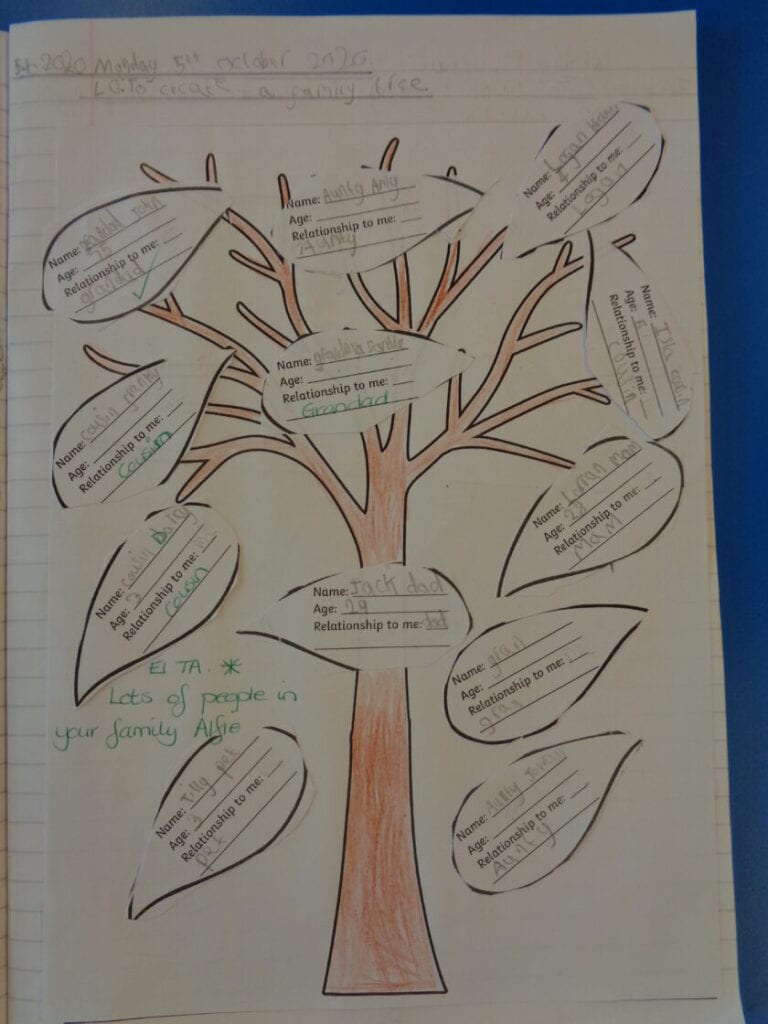 Monday 5th October 2020
LO:To create a family tree.
Name: Aunty Amy
Age:
Relationship to me:
Aunty
Name: Logan
Age: 4
Relationship to me:
Logan
Name: grandad John
Age: 75
Relationship to me:
grandad
Name: Isla
Age:
Relationship to me:
cousin
Name:
Age:
Relationship to me:
Grandad
Name: cousin
Age:
Relationship to me:
cousin
Name: Mam
Age: 28
Relationship to me:
Mam
Name:
Age: 3
Relationship to me:
cousin
Name: Jack dad
Age: 29
Relationship to me: dad
Name: gran
Age:
Relationship to me:
gran
TA. *
Lots of people in
your family Alfie
Name: Tilly pet
Age: 3
Relationship to me:
Pet
Name: Aunty
Age:
Relationship to me:
Aunty